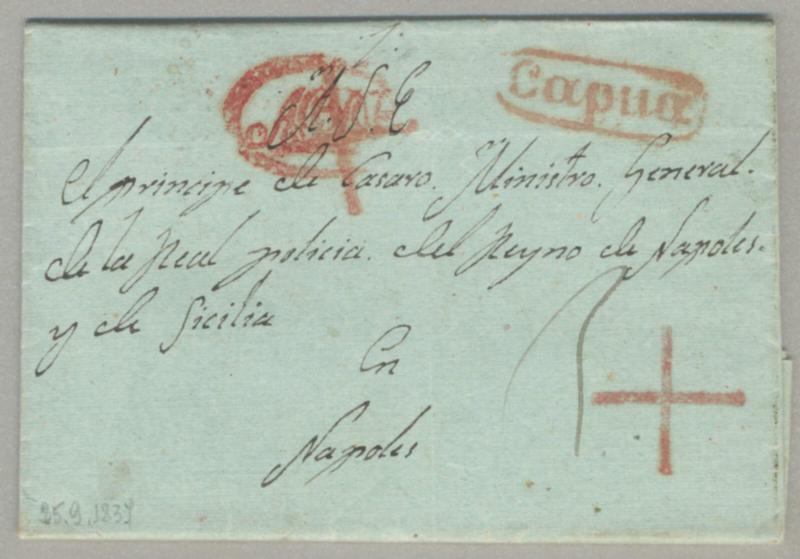 A. S. E
Capua
el principe de Casaro. Ministro. General.
de la Real policia. del Reyno de Napoles.
y de Sicilia
En
Napoles
25.9.1837